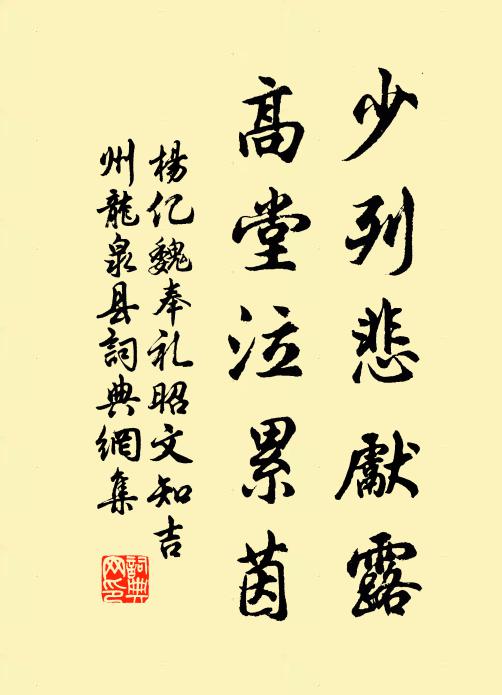 少列悲獻露
高堂泣累茵
楊億魏奉礼昭文知吉
州龍泉县詞典網集
詞典网印